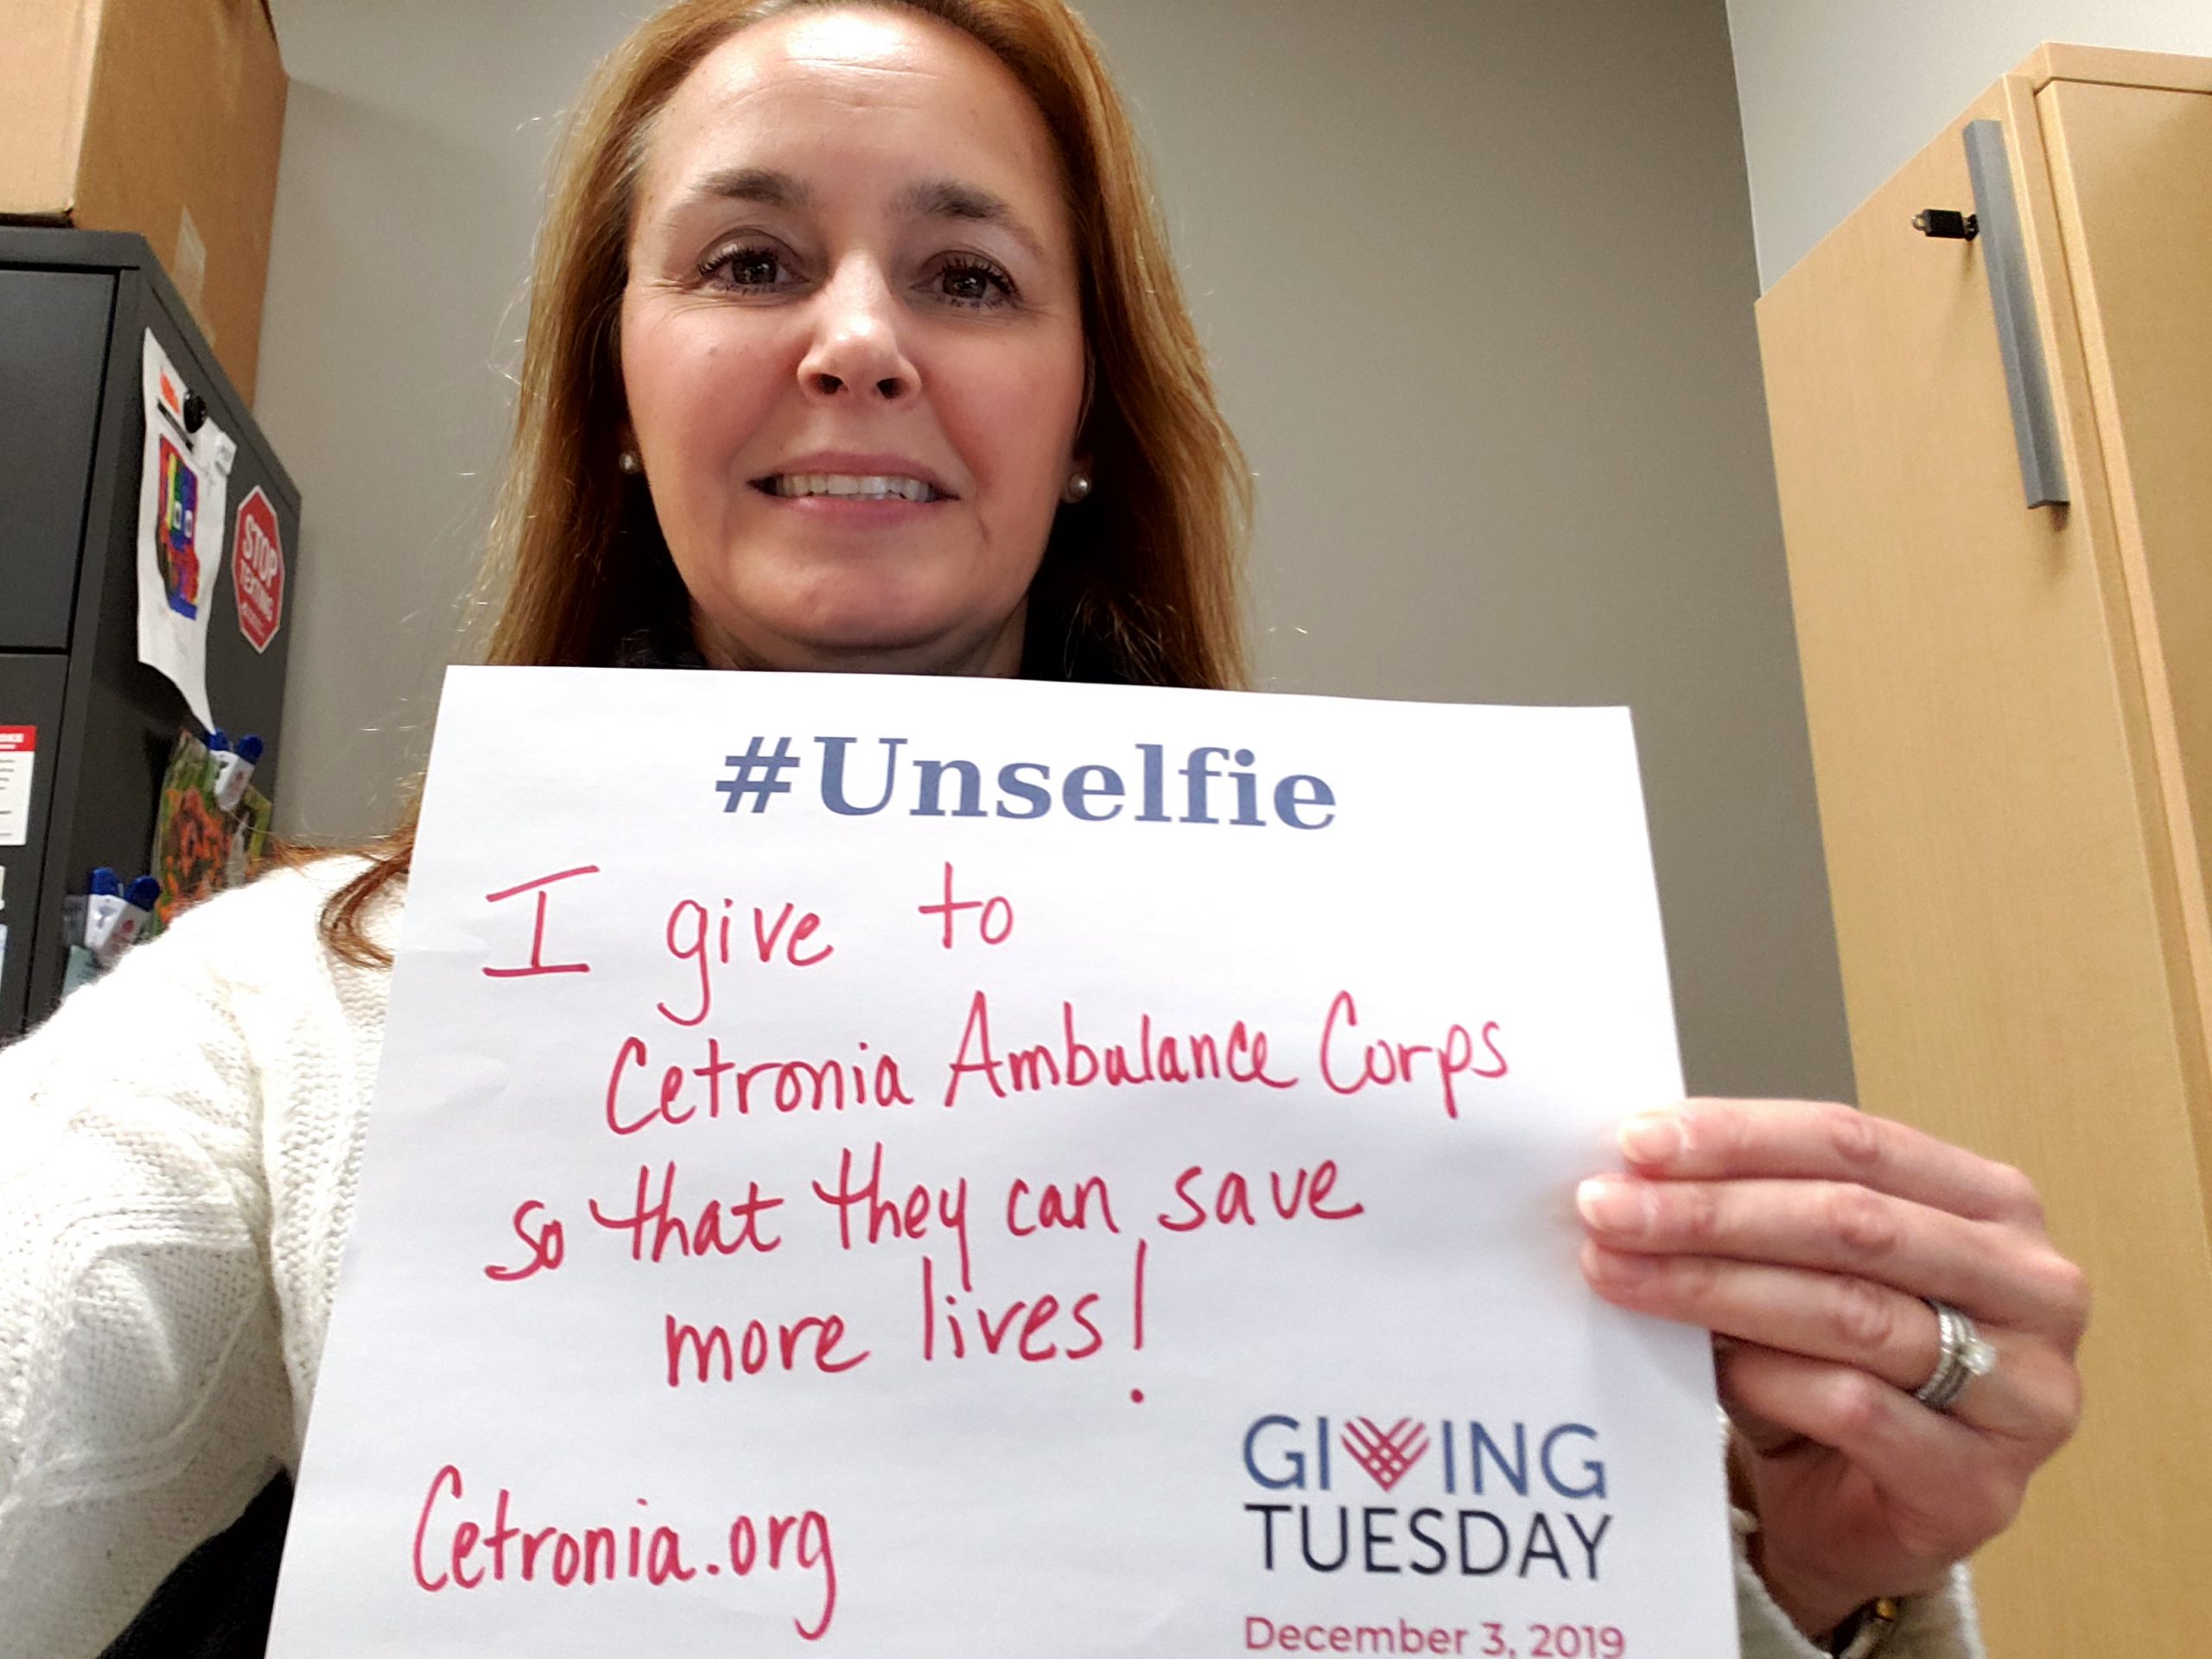 STOP
TEXTING
#Unselfie
I give to
Cetronia Ambulance Corps
so that they can save
more lives!
Cetronia.org
GIVING
TUESDAY
December 3, 2019